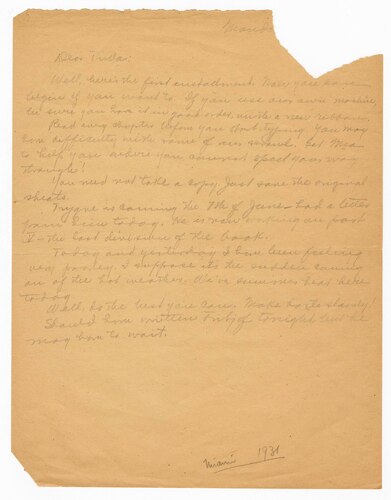 Dear Trida:
Well, here's the first installment. Now you can
begin if you want to. If you use our own machine
be sure you have it in good order, with a new ribbon.
Read each chapter before you start typing. You may
have difficulty with some of our words. Get Max
to help you where you cannot spell your way
through!
You need not take a copy. Just save the original
sheets.
Trygve is coming the 7th of June - had a letter
from him today. He is now working on part
V - the last division of the book.
Today and yesterday I have been feeling
very poorly. I suppose it's the sudden coming
on of the hot weather. We've summer heat here
today
Well, do the best you can. Make it slowly!
Should have written tonight but he
may have to wait.
Miami 1931